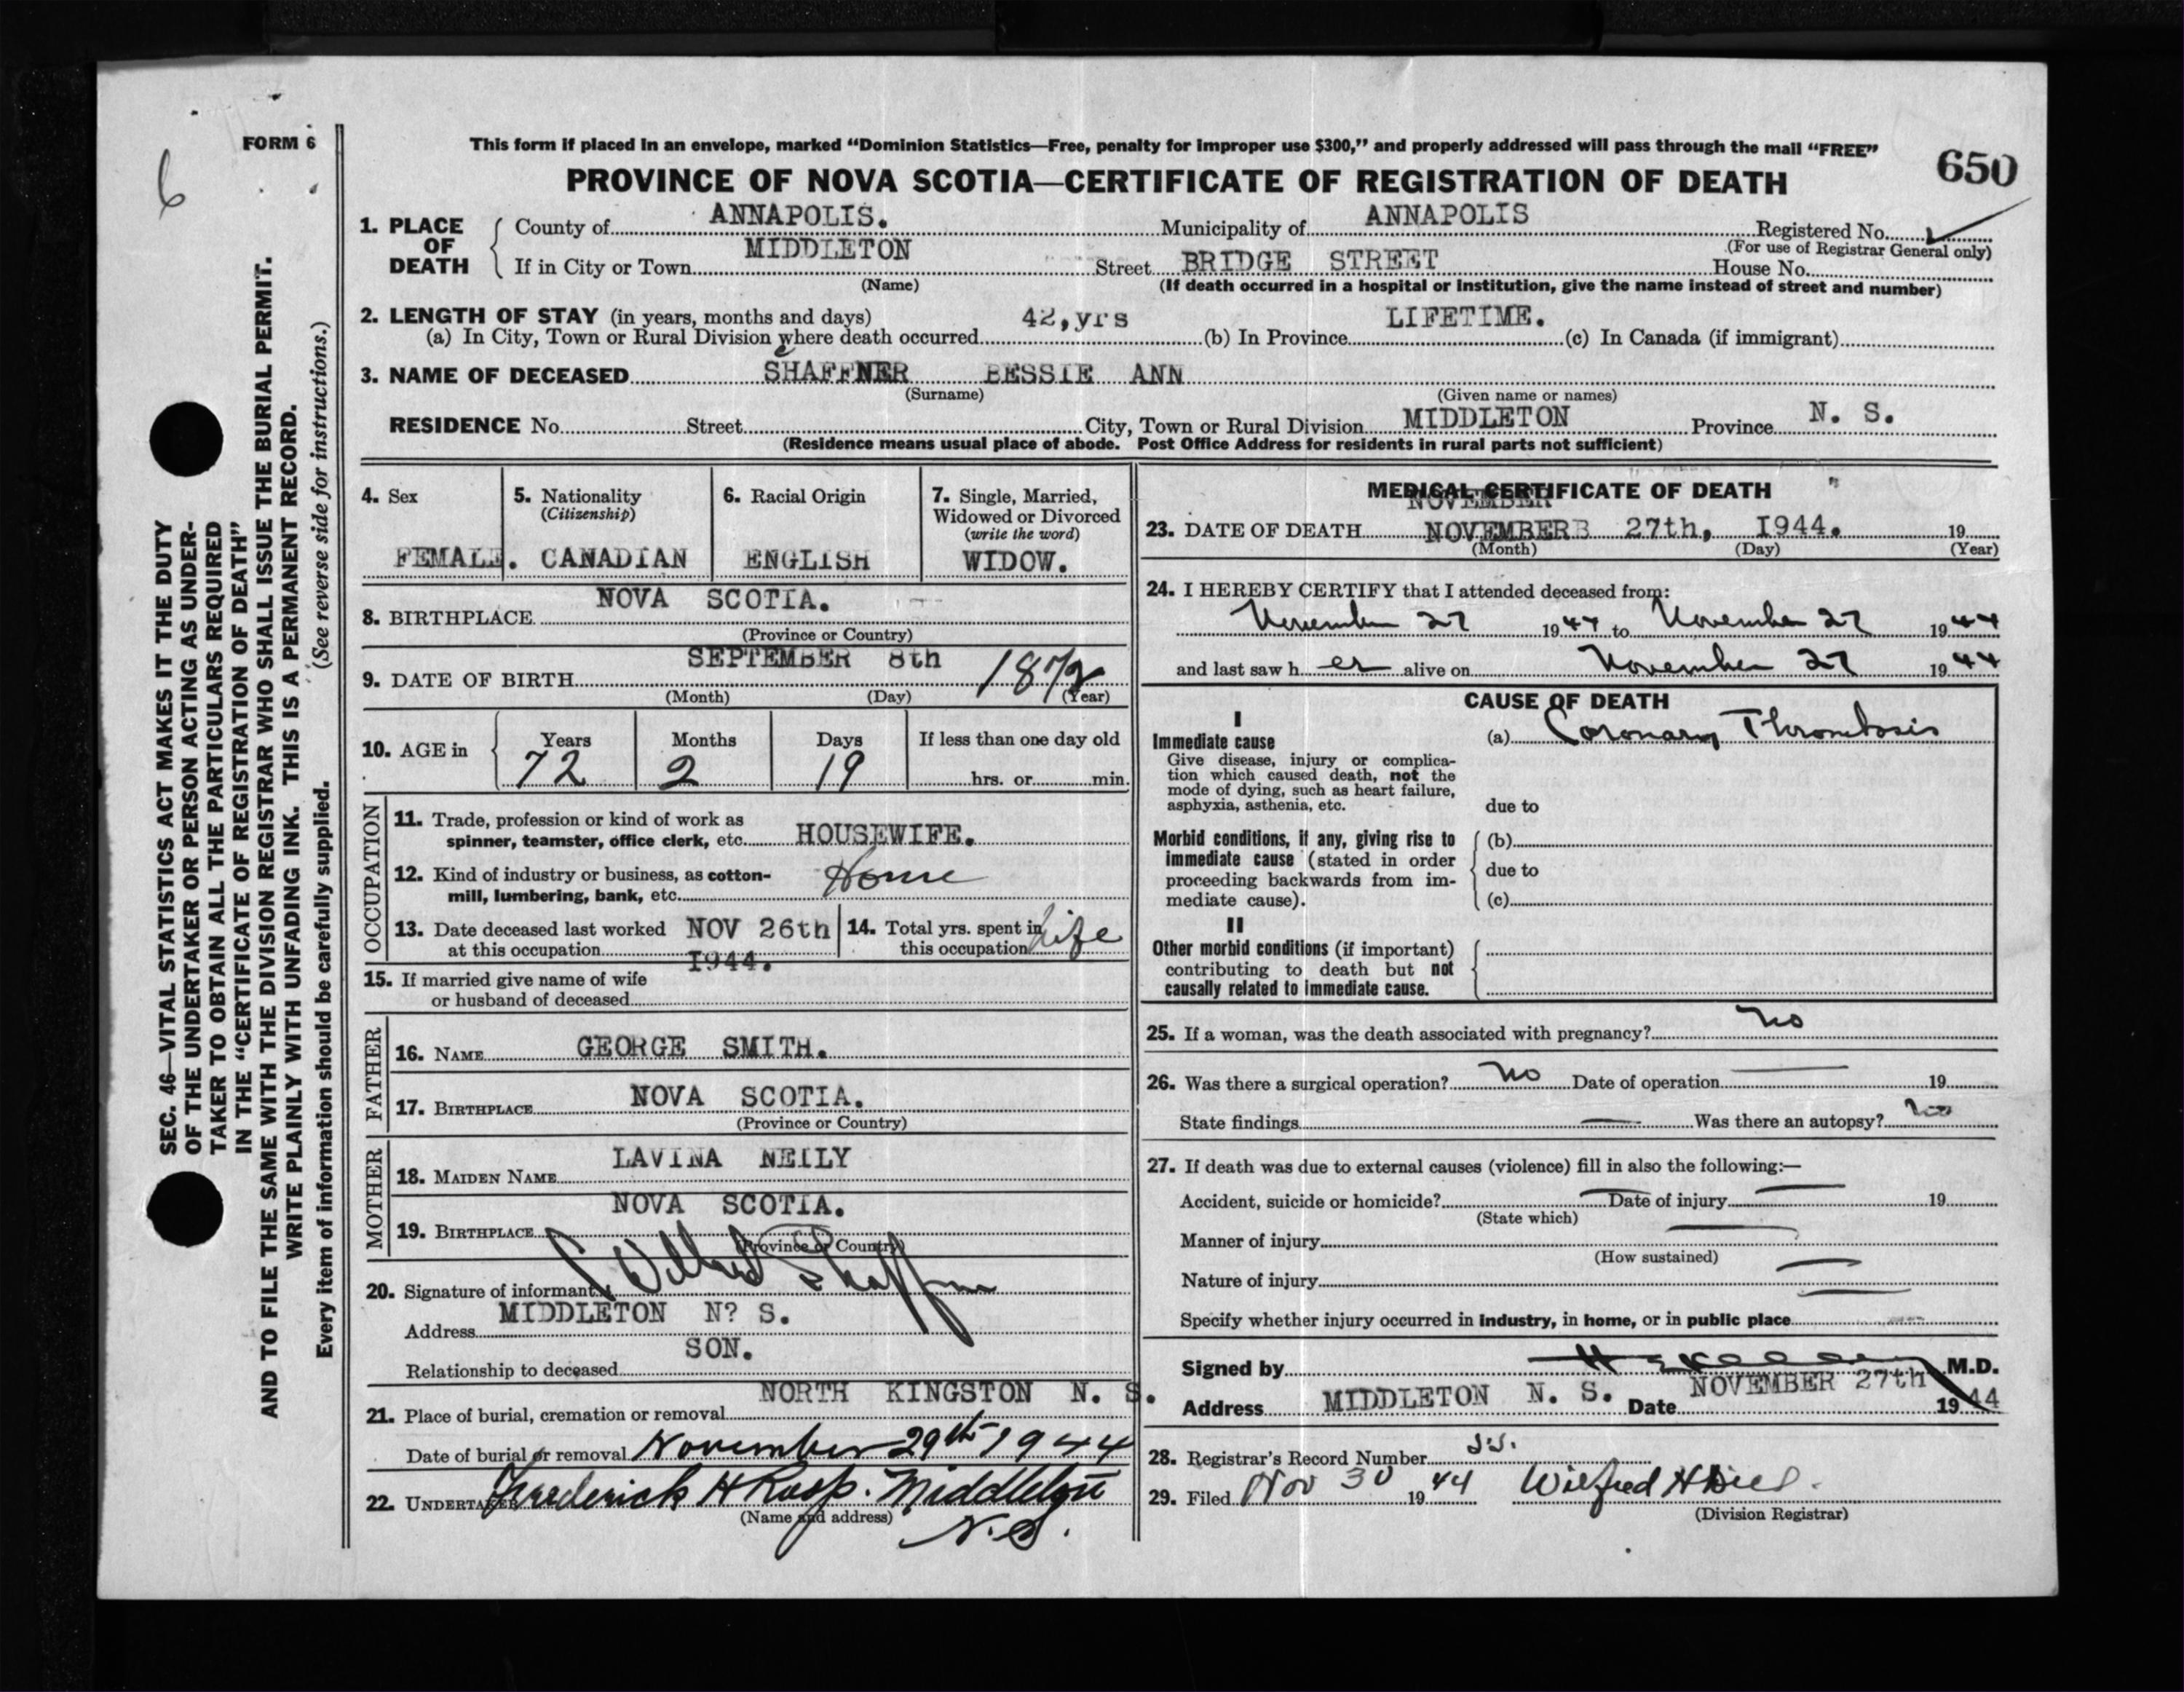 FORM 6
6
This form if placed in an envelope, marked “Dominion Statistics—Free, penalty for improper use $300,” and properly addressed will pass through the mail “FREE”
650
PROVINCE OF NOVA SCOTIA—CERTIFICATE OF REGISTRATION OF DEATH
1. PLACE OF DEATH
County of ANNAPOLIS. Municipality of ANNAPOLIS Registered No.
(For use of Registrar General only)
If in City or Town MIDDLETON Street BRIDGE STREET House No.
(Name) (If death occurred in a hospital or institution, give the name instead of street and number)
2. LENGTH OF STAY (in years, months and days)
(a) In City, Town or Rural Division where death occurred 42,yrs (b) In Province LIFETIME. (c) In Canada (if immigrant)
3. NAME OF DECEASED SHAFFNER BESSIE ANN
(Surname) (Given name or names)
RESIDENCE No. Street City, Town or Rural Division MIDDLETON Province N. S.
(Residence means usual place of abode. Post Office Address for residents in rural parts not sufficient)
4. Sex
FEMALE.
5. Nationality
(Citizenship)
CANADIAN
6. Racial Origin
ENGLISH
7. Single, Married,
Widowed or Divorced
(write the word)
WIDOW.
8. BIRTHPLACE NOVA SCOTIA.
(Province or Country)
9. DATE OF BIRTH SEPTEMBER 8th 1872
(Month) (Day) (Year)
10. AGE in
Years Months Days If less than one day old
72 2 19 hrs. or min.
OCCUPATION
11. Trade, profession or kind of work as
spinner, teamster, office clerk, etc. HOUSEWIFE.
12. Kind of industry or business, as cotton-
mill, lumbering, bank, etc. Home
13. Date deceased last worked
at this occupation NOV 26th
1944.
14. Total yrs. spent in
this occupation Life
15. If married give name of wife
or husband of deceased
FATHER
16. NAME GEORGE SMITH.
17. BIRTHPLACE NOVA SCOTIA.
(Province or Country)
MOTHER
18. MAIDEN NAME LAVINA NEILY
19. BIRTHPLACE NOVA SCOTIA.
(Province or Country)
20. Signature of informant Shaffner
Address MIDDLETON N? S.
Relationship to deceased SON.
21. Place of burial, cremation or removal NORTH KINGSTON N. S.
Date of burial or removal November 29th 1944
22. UNDERTAKER Frederick H Middleton
(Name and address)
N.S.
MEDICAL CERTIFICATE OF DEATH
NOVEMBER
23. DATE OF DEATH NOVEMBERB 27th, 1944. 19
(Month) (Day) (Year)
24. I HEREBY CERTIFY that I attended deceased from:
November 27 1944 to November 27 1944
and last saw h er alive on November 27 1944
CAUSE OF DEATH
I
Immediate cause
Give disease, injury or complica-
tion which caused death, not the
mode of dying, such as heart failure,
asphyxia, asthenia, etc.
(a) Coronary Thrombosis
due to
Morbid conditions, if any, giving rise to
immediate cause (stated in order
proceeding backwards from im-
mediate cause).
(b)
due to
(c)
II
Other morbid conditions (if important)
contributing to death but not
causally related to immediate cause.
25. If a woman, was the death associated with pregnancy? no
26. Was there a surgical operation? no Date of operation 19
State findings Was there an autopsy? no
27. If death was due to external causes (violence) fill in also the following:—
Accident, suicide or homicide? Date of injury 19
(State which)
Manner of injury
(How sustained)
Nature of injury
Specify whether injury occurred in industry, in home, or in public place
Signed by M.D.
Address MIDDLETON N. S. Date NOVEMBER 27th 1944
28. Registrar's Record Number
29. Filed Nov 30 1944 Wilfred H
(Division Registrar)
SEC. 46—VITAL STATISTICS ACT MAKES IT THE DUTY
OF THE UNDERTAKER OR PERSON ACTING AS UNDER-
TAKER TO OBTAIN ALL THE PARTICULARS REQUIRED
IN THE “CERTIFICATE OF REGISTRATION OF DEATH”
AND TO FILE THE SAME WITH THE DIVISION REGISTRAR WHO SHALL ISSUE THE BURIAL PERMIT.
WRITE PLAINLY WITH UNFADING INK. THIS IS A PERMANENT RECORD.
Every item of information should be carefully supplied. (See reverse side for instructions.)